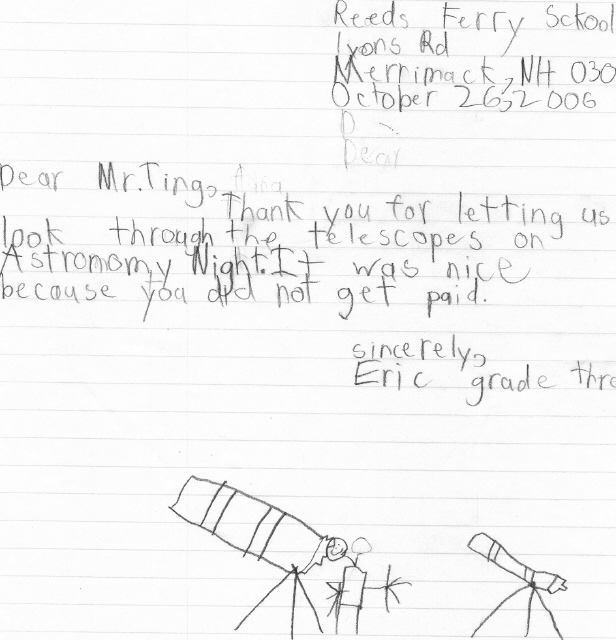 Reeds Ferry School
Lyons Rd
Merrimack, NH 030
October 26,2006
D
Dear
Dear Mr.Ting,
Thank you for letting us
look through the telescopes on
Astromomy Night.It was nice
because you did not get paid.
sincerely,
Eric grade thre